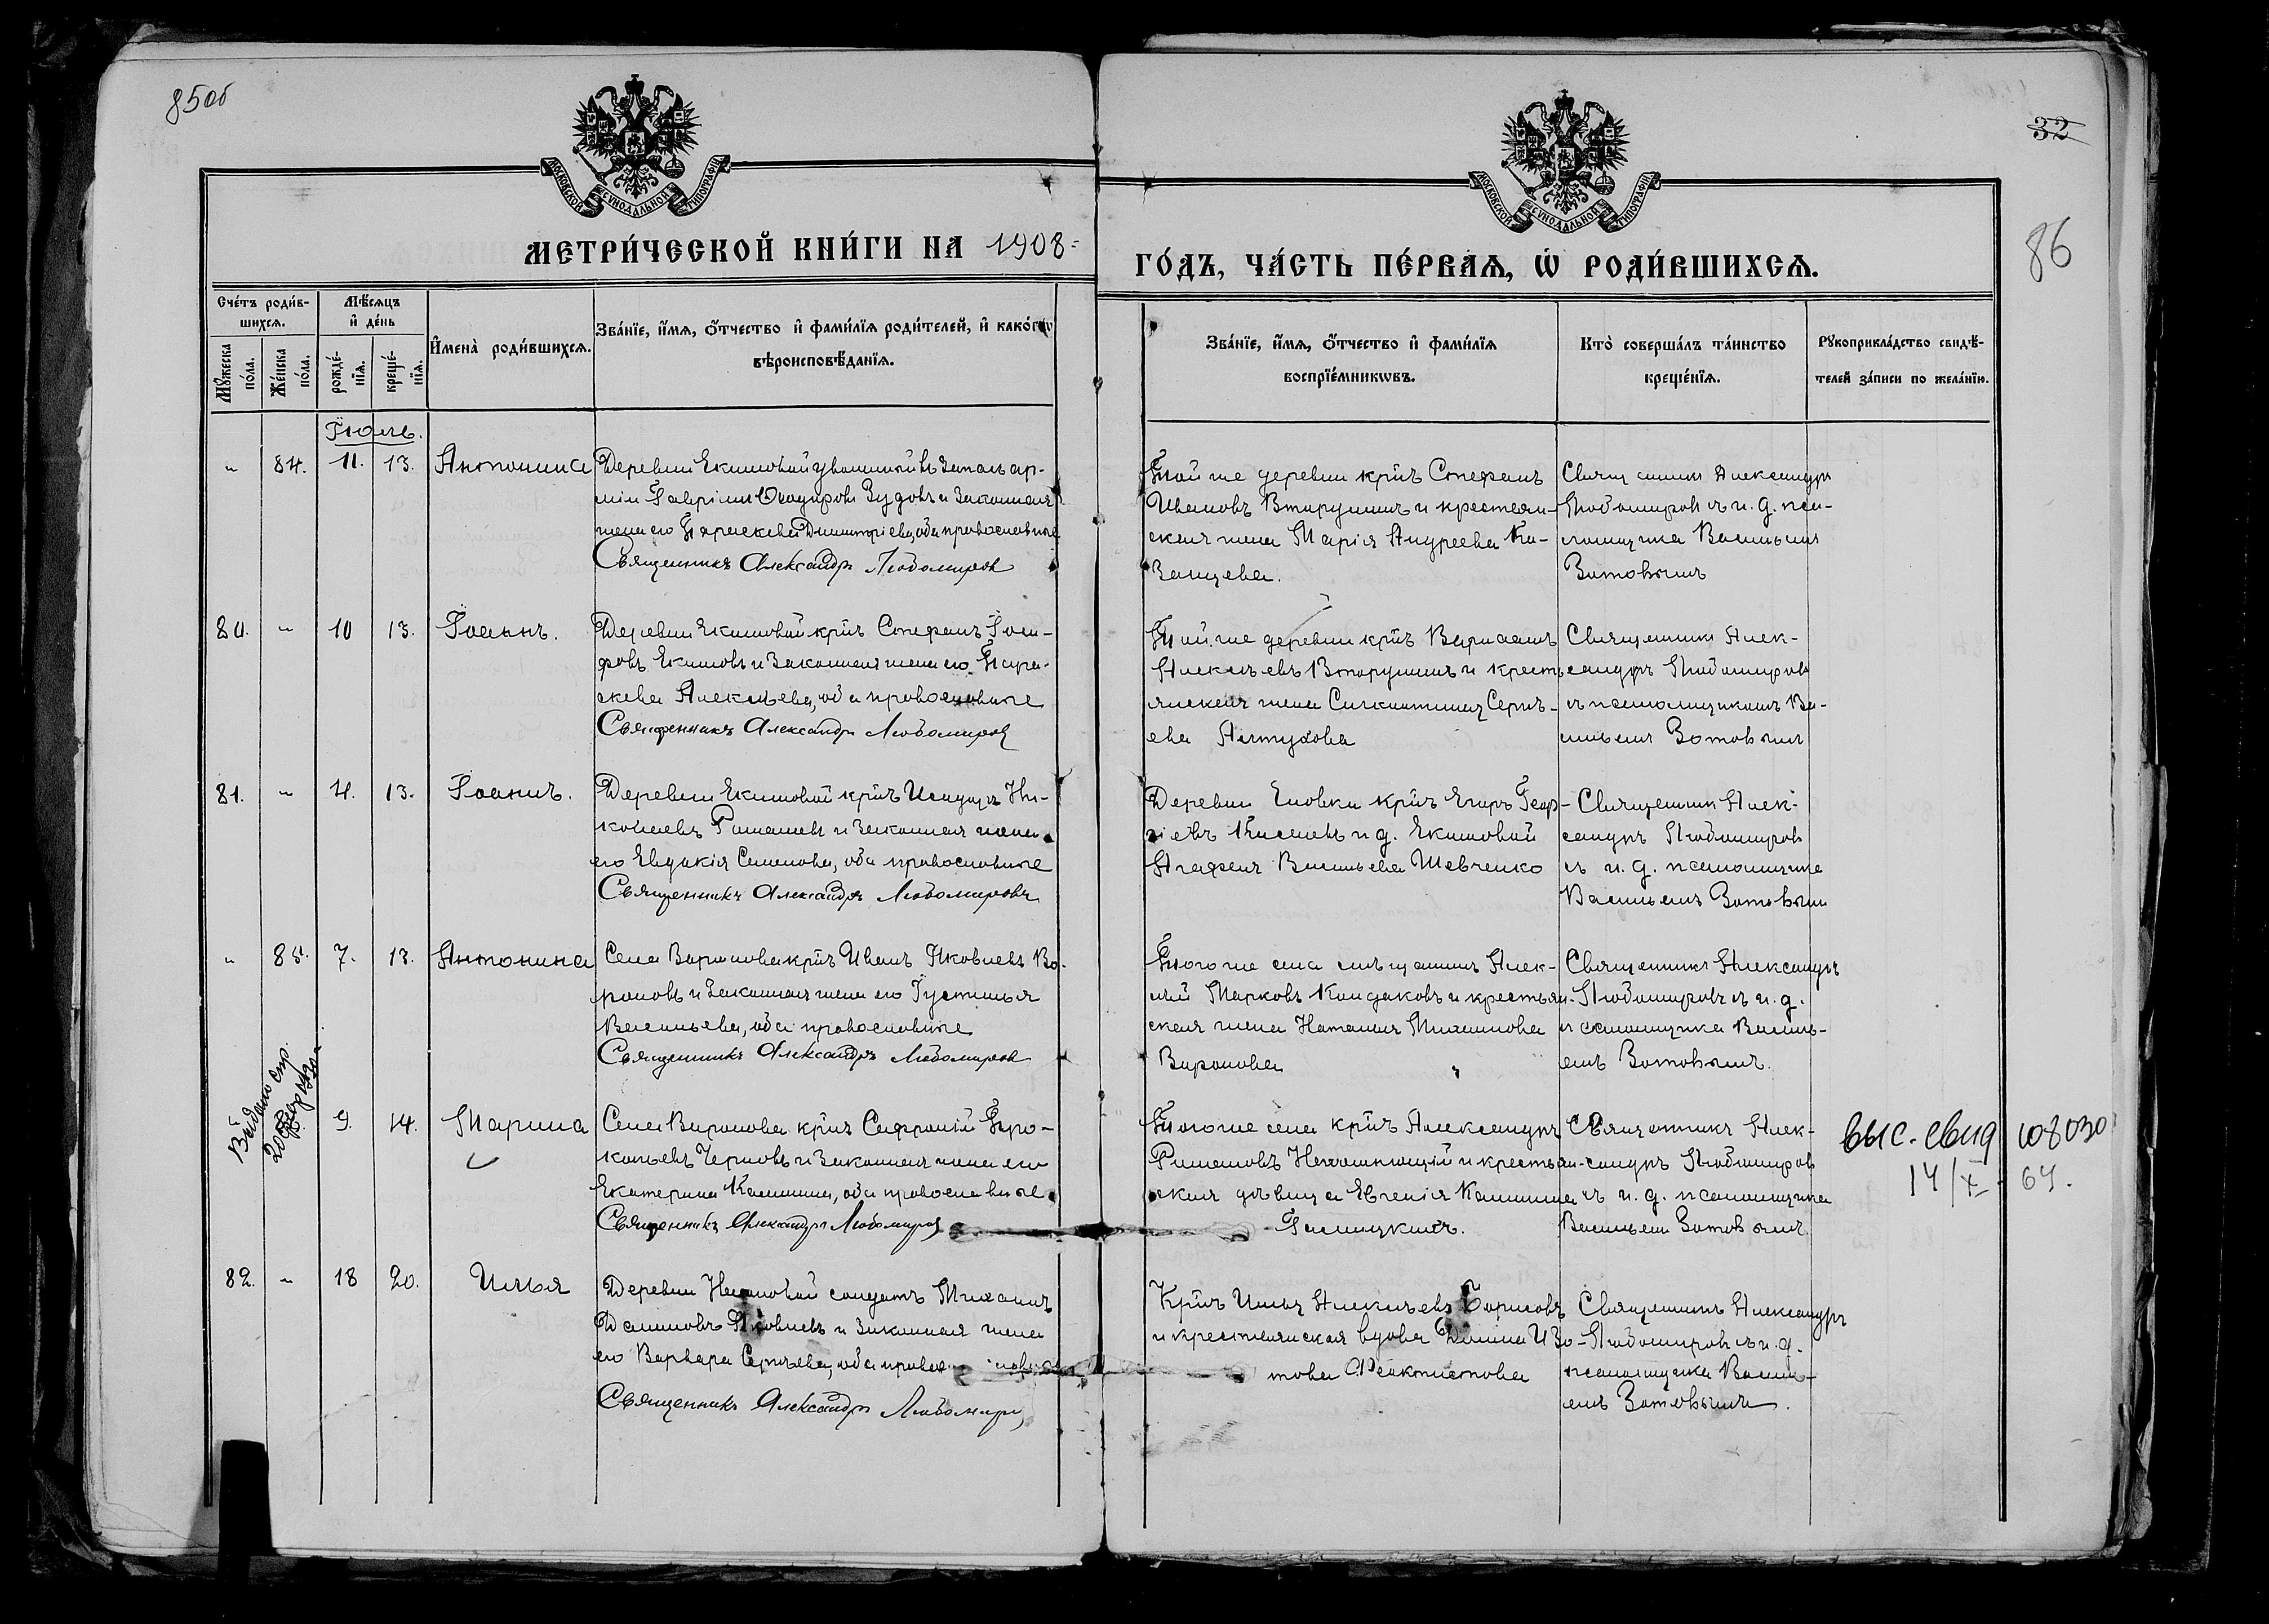 85об
32
86
МОСКОВСКОЙ СѴНОДАЛЬНОЙ ТИПОГРАФІИ
МОСКОВСКОЙ СѴНОДАЛЬНОЙ ТИПОГРАФІИ
МЕТРИ́ЧЕСКОЙ КНИ́ГИ НА 1908
ГО́ДЪ, ЧА́СТЬ ПЕ́РВАѦ, Ѽ РОДИ́ВШИХСѦ.
Сче́тъ роди́в-
шихсѧ.
Мѣ́сѧцъ
и҆ де́нь
Мꙋ́жеска по́ла.
Же́нска по́ла.
рожде́-
нїѧ.
креще́-
нїѧ.
И҆мена̀ роди́вшихсѧ.
Зва́нїе, и҆́мѧ, ѻ҆́тчество и҆ фами́лїѧ роди́телей, и҆ како́гѡ
вѣроисповѣ́данїѧ.
Зва́нїе, и҆́мѧ, ѻ҆́тчество и҆ фами́лїѧ
воспрїе́мникѡвъ.
Кто̀ соверша́лъ та́инство
креще́нїѧ.
Рꙋкоприкла́дство свидѣ́-
телей за́писи по жела́нїю.
Іюль.
" 84. 11. 13. Антонина
Деревни Екимовой уволенный въ запасъ ар-
міи Гавріилъ Зудовъ и законная
жена его Параскева Димитріева, оба православные
Священникъ Александръ Любомировъ
Той же деревни крнъ Стефанъ
Ивановъ Вторушинъ и крестьян-
ская жена Марія Андреева Ка-
занцева.
Священникъ Александръ
Любомировъ съ и. д. пса-
ломщика Василіемъ
Зотовымъ
80. " 10 13. Іоаннъ.
Деревни Екимовой крнъ Стефанъ Іоси-
фовъ Екимовъ и законная жена его Пара-
скева Алексѣева, оба православные
Священникъ Александръ Любомировъ
Той же деревни крнъ Варлаамъ
Алексѣевъ Вторушинъ и кресть-
янская жена Сергѣ-
ева Алтухова
Священникъ Алек-
сандръ Любомировъ
съ псаломщикомъ Ва-
сильемъ Зотовымъ
81. " 11. 13. Іоаннъ.
Деревни Екимовой крнъ Исидоръ Ни-
колаевъ Романовъ и законная жена
его Евдокія Семенова, оба православные
Священникъ Александръ Любомировъ
Деревни Еловки крнъ Егоръ Геор-
гіевъ и д. Екимовой
Агафья Васильева Шевченко
Священникъ Алек-
сандръ Любомировъ
съ и. д. псаломщика
Васильемъ Зотовымъ
" 85. 7. 13. Антонина
Села Воронова крнъ Иванъ Яковлевъ Во-
роновъ и законная жена его Іустинья
Васильева, оба православные
Священникъ Александръ Любомировъ
Того же села мѣщанинъ Алек-
сѣй Марковъ Кондаковъ и крестьян-
ская жена Наталья Михайлова
Воронова
Священникъ Александръ
Любомировъ съ и. д.
псаломщика Василь-
емъ Зотовымъ.
Выдано спр.
9. 14. Марина
Села Воронова крнъ Софроній Про-
копьевъ Черновъ и законная жена его
Екатерина Калинина, оба православные
Священникъ Александръ Любомировъ
Того же села крнъ Александръ
Романовъ и крестьян-
ская дѣвица Евгенія Калинина
Священникъ Алек-
сандръ Любомировъ
съ и. д. псаломщика
Васильемъ Зотовымъ.
выс. свид ю8 030
14/X 64.
82. " 18 20. Илья
Деревни солдатъ Михаилъ
Даниловъ Яковлевъ и законная жена
его Варвара Сергѣева, оба православные
Священникъ Александръ Любомировъ
Крнъ Илья Алексѣевъ Борисовъ
и крестьянская вдова Домна Изо-
това Феоктистова
Священникъ Александръ
Любомировъ съ и. д.
псаломщика Василь-
емъ Зотовымъ.